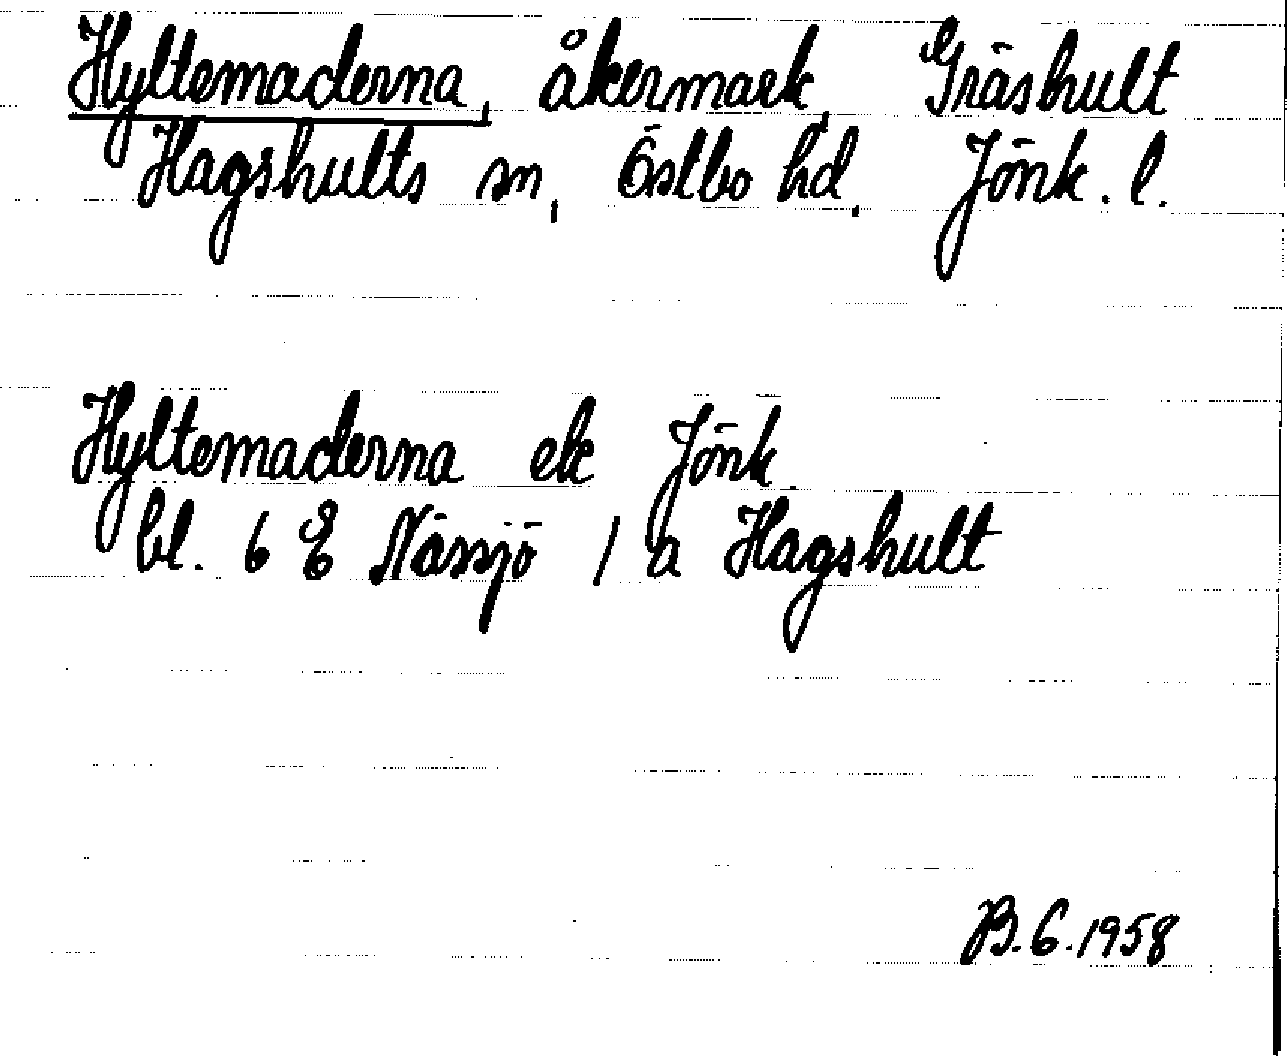 Hyltemaderna, åkermark, Gräshult
Hagshults sn, Östbo hd, Jönk. l.
Hyltemaderna ek Jönk.
bl. 6 E Nässjö / a Hagshult
B.G.1958